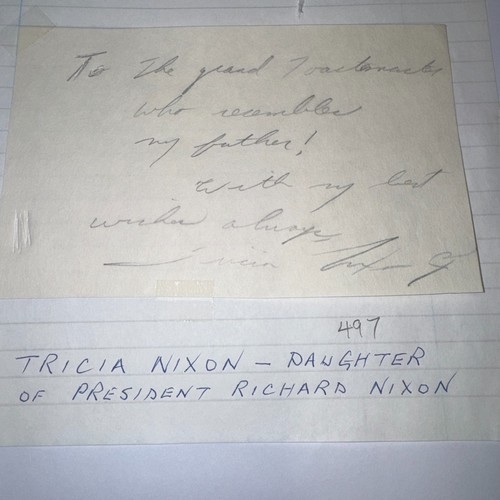 To The grand Toastmaster
who resembles
my father!
With my best
wishes always,
Tricia Nixon C
497
TRICIA NIXON - DAUGHTER
OF PRESIDENT RICHARD NIXON